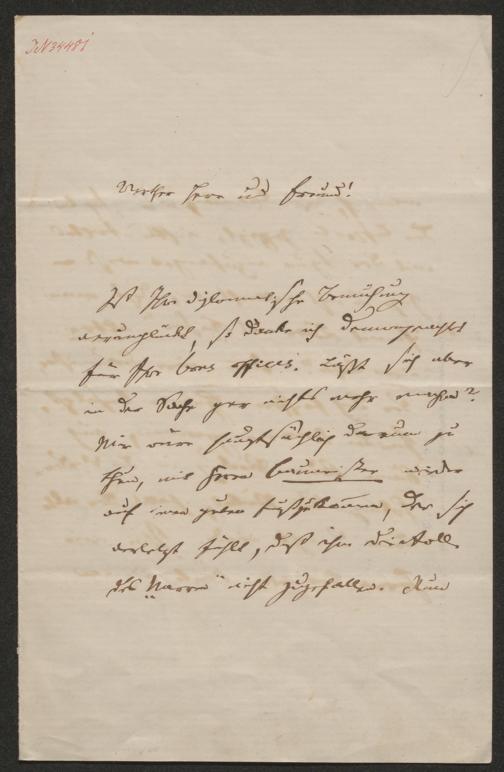 JN 34481
Werther Herr und Freund!
Ist Ihre diplomatische Bemühung
verunglückt, so danke ich demungeachtet
für Ihre bons offices. Läßt sich aber
in der Sache gar nichts mehr machen?
Mir wäre hauptsächlich darum zu
thun, mit Herrn Baumeister wieder
auf einen guten Fuß zu kommen, der sich
verletzt fühlt, daß ihm die Rolle
des „Narren" nicht zugefallen. Nun